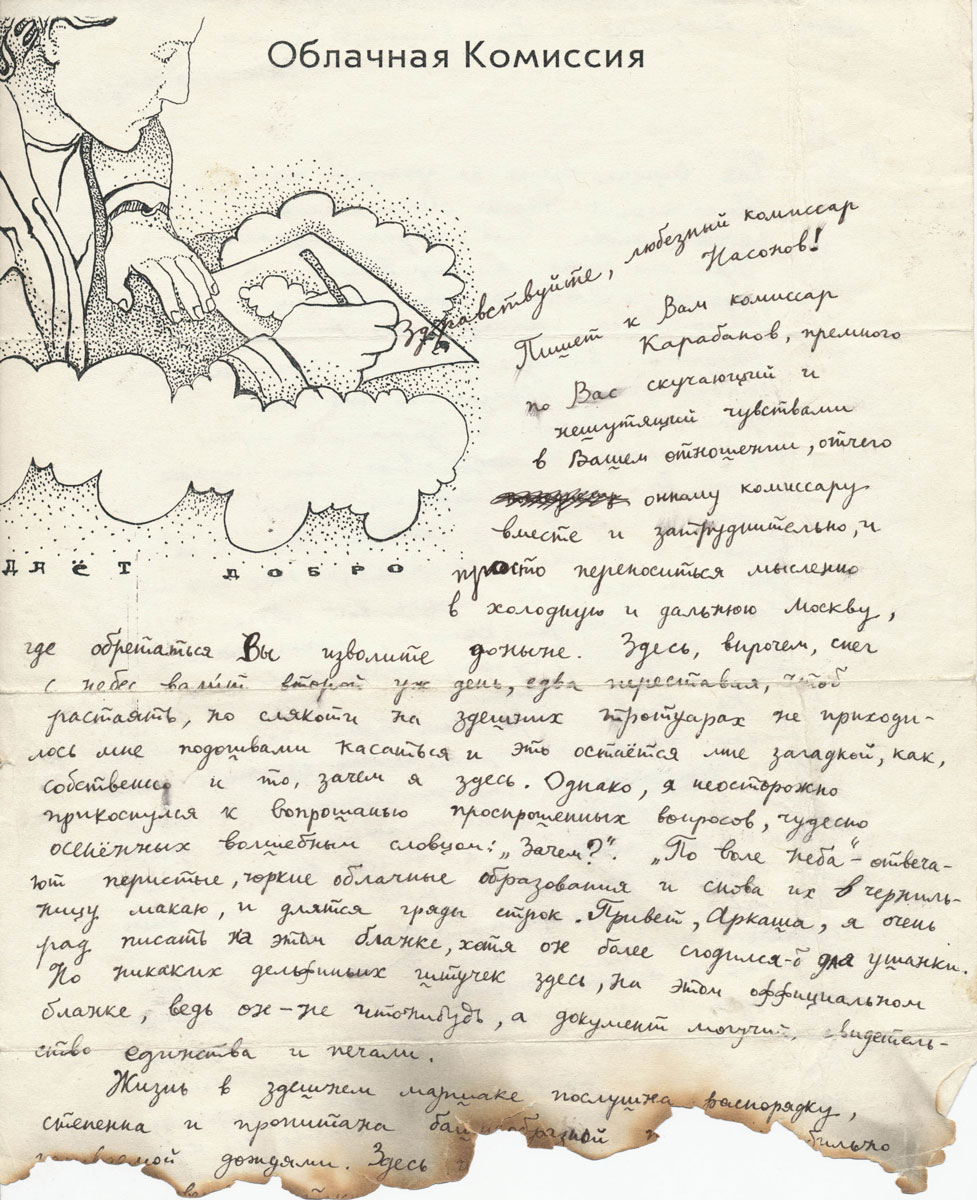 Облачная Комиссия
Здравствуйте, любезный комиссар
Насонов!
Пишет к Вам комиссар
Карабанов, премного
по Вас скучающий и
нешутящий чувствами
в Вашем отношении, отчего
онному комиссару
вместе и затруднительно, и
просто переноситься мысленно
в холодную и дальнюю Москву,
ДАЁТ ДОБРО
где обретаться Вы изволите доныне. Здесь, впрочем, снег
с небес валит второй уж день, едва переставая, чтоб
растаять, но слякоти на здешних тротуарах не приходи-
лось мне подошвами касаться и это остаётся мне загадкой, как,
собственно и то, зачем я здесь. Однако, я неосторожно
прикоснулся к вопрошанью проспрошенных вопросов, чудесно
осенённых волшебным словцом: „Зачем?“. „По воле неба“ – отвеча-
ют перистые, юркие облачные образования и снова их в черниль-
ницу макаю, и длятся гряды строк. Привет, Аркаша, я очень
рад писать на этом бланке, хотя он более сгодился-б для ушанки.
Но никаких дельфиньих штучек здесь, на этом оффициальном
бланке, ведь он – не чтонибудь, а документ могучий, свидетель-
ство единства и печали.
Жизнь в здешнем маршаке послушна распорядку,
степенна и пропитана
дождями. Здесь